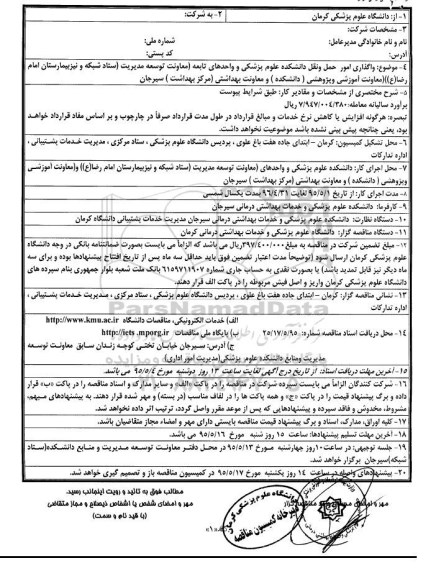 ۱- از: دانشگاه علوم پزشکی کرمان
۲- به شرکت:
۳- مشخصات شرکت:
نام و نام خانوادگی مدیرعامل:
شماره ملی:
آدرس:
کد پستی:
۴- موضوع: واگذاری امور حمل ونقل دانشکده علوم پزشکی و واحدهای تابعه (معاونت توسعه مدیریت (ستاد شبکه و نیزبیمارستان امام
رضا(ع))(معاونت آموزشی وپژوهشی ( دانشکده ) و معاونت بهداشتی (مرکز بهداشت ) سیرجان
۵- شرح مختصری از مشخصات و مقادیر کار: طبق شرایط پیوست
برآورد سالیانه معامله: ۷/۹۴۷/۰۰۴/۳۸۰ ریال
تبصره: هرگونه افزایش یا کاهش نرخ خدمات و مبالغ قرارداد در طول مدت قرارداد صرفاً در چارچوب و بر اساس مفاد قرارداد خواهد
بود، یعنی چنانچه پیش بینی نشده باشد موضوعیت نخواهد داشت.
۶- محل تشکیل کمیسیون: کرمان – ابتدای جاده هفت باغ علوی ، پردیس دانشگاه علوم پزشکی ، ستاد مرکزی ، مدیریت خدمات پشتیبانی ،
اداره تدارکات
۷- محل اجرای کار: دانشکده علوم پزشکی و واحدهای (معاونت توسعه مدیریت (ستاد شبکه و نیزبیمارستان امام رضا(ع)) و(معاونت آموزشی
وپژوهشی ( دانشکده ) و معاونت بهداشتی (مرکز بهداشت ) سیرجان
۸- مدت اجرای کار: از تاریخ ۹۵/۵/۱ لغایت ۹۶/۴/۳۱ بمدت یکسال شمسی
۹- کارفرما: دانشکده علوم پزشکی و خدمات بهداشتی درمانی سیرجان
۱۰- دستگاه نظارت: دانشکده علوم پزشکی و خدمات بهداشتی درمانی سیرجان مدیریت خدمات پشتیبانی دانشگاه کرمان
۱۱- دستگاه مناقصه گزار: دانشگاه علوم پزشکی و خدمات بهداشتی درمانی کرمان
۱۲- مبلغ تضمین شرکت در مناقصه به مبلغ ۳۹۷/۴۰۰/۰۰۰ ریال می باشد که الزاماً می بایست بصورت ضمانتنامه بانکی در وجه دانشگاه
علوم پزشکی کرمان ارسال شود (توضیحاً مدت اعتبار تضمین فوق باید حداقل سه ماه پس از تاریخ افتتاح پیشنهادها بوده و برای سه
ماه دیگر نیز قابل تمدید باشد) یا بصورت نقدی به حساب جاری شماره ۶۱۵۹۷۱۱۹۰۷ بانک ملت شعبه بلوار جمهوری بنام سپرده های
دانشگاه علوم پزشکی کرمان واریز و اصل فیش مربوطه را در پاکت الف قرار دهند.
۱۳- نشانی مناقصه گزار: کرمان – ابتدای جاده هفت باغ علوی ، پردیس دانشگاه علوم پزشکی ، ستاد مرکزی ، مدیریت خدمات پشتیبانی ،
اداره تدارکات
الف) خدمات الکترونیکی، مناقصات دانشگاه http://www.kmu.ac.ir
۱۴- محل دریافت اسناد مناقصه شماره: ۲۵/۱۷/۵/۹۵
ب) پایگاه ملی مناقصات http://iets.mporg.ir
ج) آدرس: سیرجان خیابان تختی کوچه ژندان سابق معاونت توسعه
مدیریت ومنابع دانشکده علوم پزشکی(مدیریت امور اداری)
۱۵- آخرین مهلت دریافت اسناد: از تاریخ درج آگهی لغایت ساعت ۱۳ روز دوشنبه مورخ ۹۵/۵/۴ می باشد.
۱۶- شرکت کنندگان الزاماً می بایست سپرده شرکت در مناقصه را در پاکت «الف» و سایر مدارک و اسناد مناقصه را در پاکت «ب» قرار
داده و برگ پیشنهاد قیمت را در پاکت «ج» و همه پاکت ها را در لفاف مناسب (در بسته) و مهر شده قرار دهند. به پیشنهادهای مبهم،
مشروط، مخدوش و فاقد سپرده و پیشنهادهایی که پس از موعد مقرر واصل گردد، ترتیب اثر داده نخواهد شد.
۱۷- کلیه اوراق، مدارک، اسناد و برگ پیشنهاد قیمت مناقصه بایستی دارای مهر و امضاء مجاز متقاضیان باشد.
۱۸- آخرین مهلت تسلیم پیشنهادها: ساعت ۱۵ روز شنبه مورخ ۹۵/۵/۱۶ می باشد.
۱۹- جلسه توجیهی: در ساعت ۱۰ روز چهارشنبه مورخ ۹۵/۵/۱۳ در محل دفتر معاونت توسعه مدیریت و منابع دانشکده(ستاد
شبکه)سیرجان برگزار خواهد شد.
۲۰- پیشنهادهای واصله در ساعت ۱۴ روز یکشنبه مورخ ۹۵/۵/۱۷ در کمیسیون مناقصه باز و تصمیم گیری خواهد شد.
مطالب فوق به تائید و رویت اینجانب رسید.
مهر و امضای شخص یا اشخاص ذیصلاح و مجاز متقاضی
(با قید نام و سمت)
دانشگاه علوم پزشکی کرمان
دبیرخانه کمیسیون مناقصه